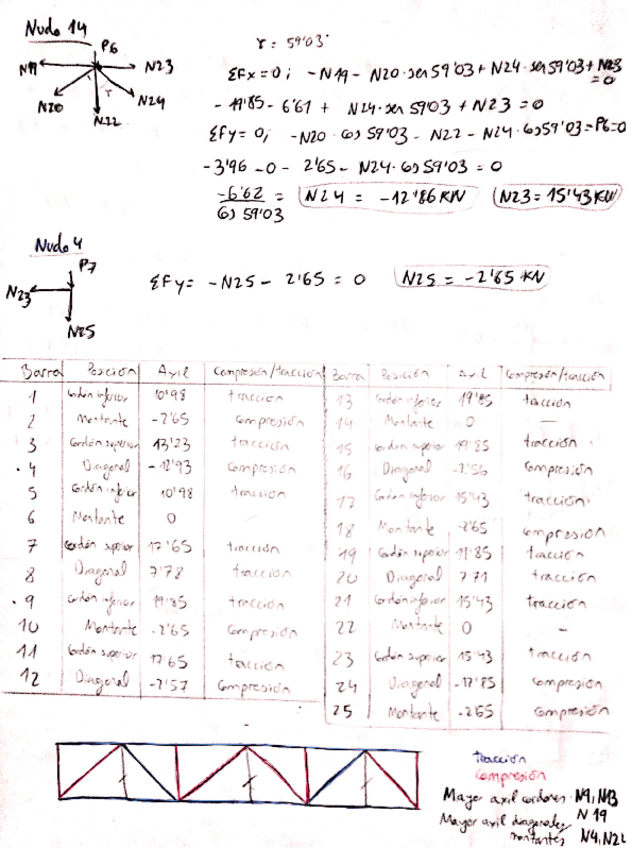 Nudo 14
P6
N19
N23
N20
γ
N24
N22
γ = 59'03°
ΣFx = 0; -N19 - N20·sen 59'03 + N24·sen 59'03 + N23 = 0
-19'85 - 6'61 + N24·sen 59'03 + N23 = 0
ΣFy = 0; -N20·cos 59'03 - N22 - N24·cos 59'03 - P6 = 0
-3'96 - 0 - 2'65 - N24·cos 59'03 = 0
-6'62 / cos 59'03 = N24 = -12'86 KN N23 = 15'43 KN
Nudo 4
P7
N23
N25
ΣFy = -N25 - 2'65 = 0 N25 = -2'65 KN
Barra Posición Axil Compresión/tracción Barra Posición Axil Compresión/tracción
1 Cordón inferior 10'98 tracción 13 Cordón inferior 19'85 tracción
2 Montante -2'65 Compresión 14 Montante 0 —
3 Cordón superior 13'23 tracción 15 Cordón superior 19'85 tracción
4 Diagonal -12'93 Compresión 16 Diagonal -7'56 Compresión
5 Cordón inferior 10'98 tracción 17 Cordón inferior 15'43 tracción
6 Montante 0 18 Montante -2'65 Compresión
7 Cordón superior 17'65 tracción 19 Cordón superior 19'85 tracción
8 Diagonal 7'78 tracción 20 Diagonal 7'71 tracción
9 Cordón inferior 19'85 tracción 21 Cordón inferior 15'43 tracción
10 Montante -2'65 Compresión 22 Montante 0 -
11 Cordón superior 17'65 tracción 23 Cordón superior 15'43 tracción
12 Diagonal -7'57 Compresión 24 Diagonal -12'85 Compresión
25 Montante -2'65 Compresión
tracción
Compresión
Mayor axil cordones · N9, N13
N19
Mayor axil diagonales
montantes N4, N24